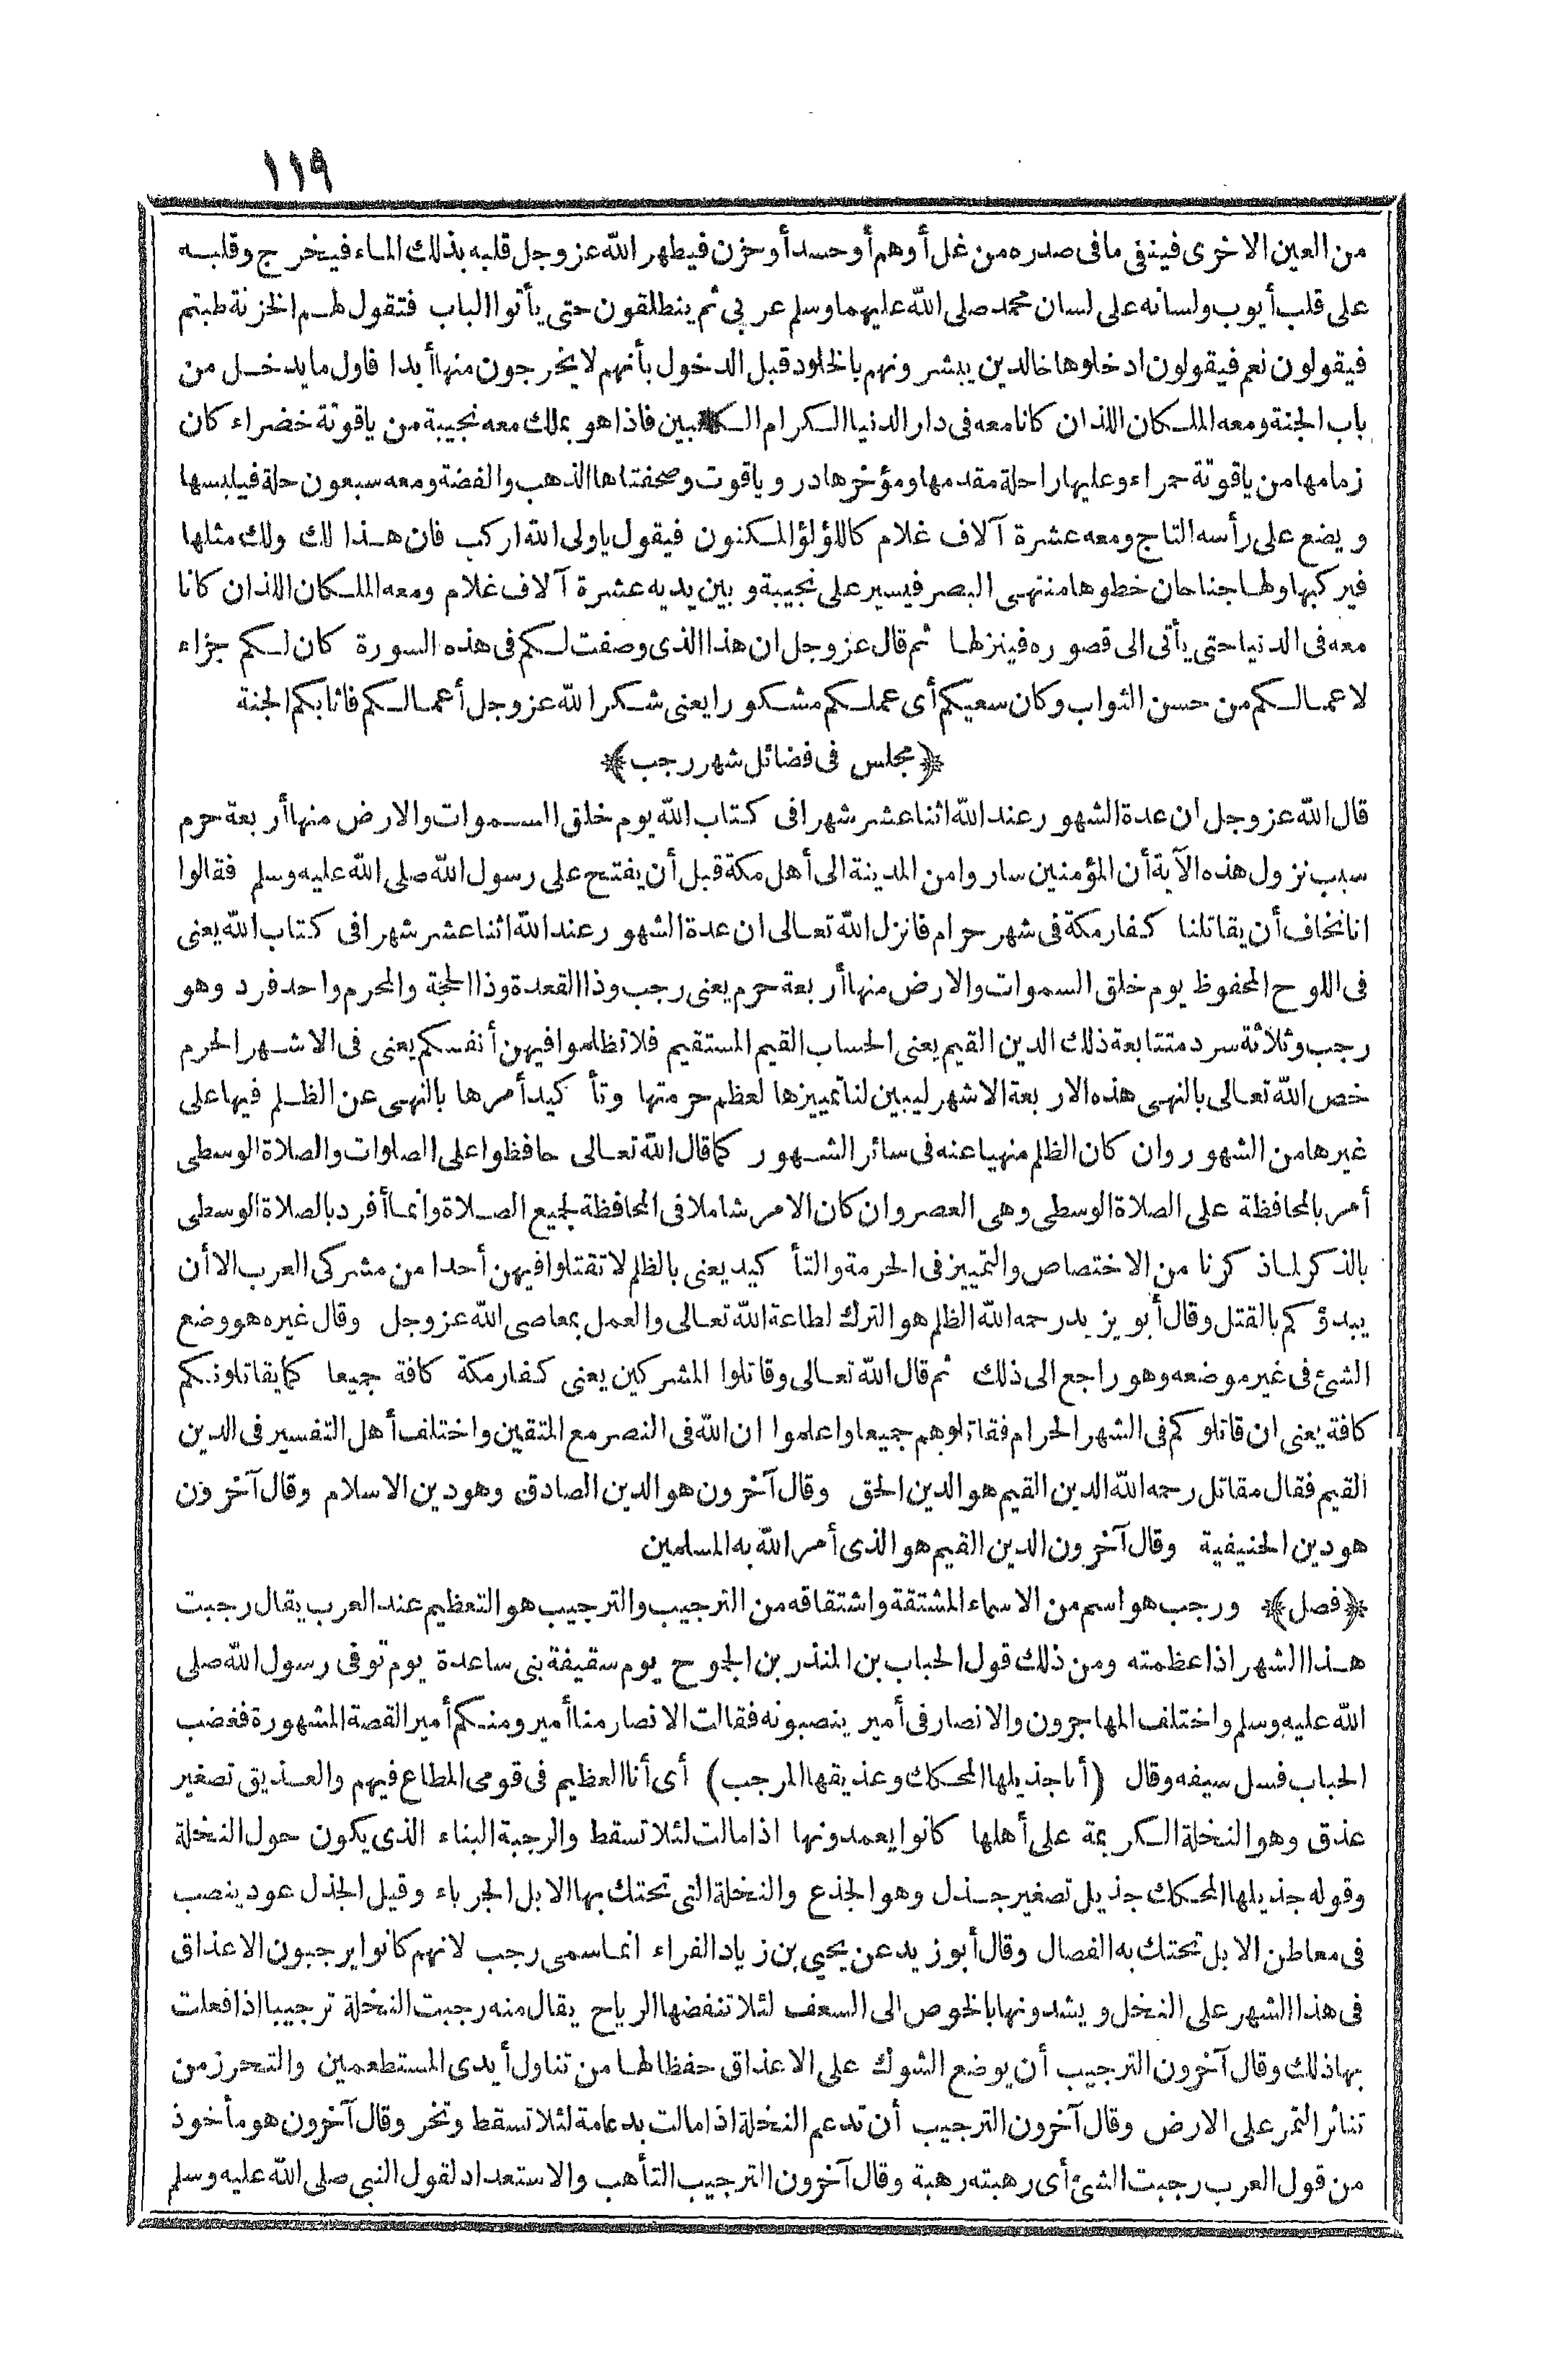 ١١٩
من العين الاخرى فينفي ما فى صدره من غل أو هم أو حسد أو حزن فيطهر الله عز وجل قلبه بذلك الماء فيخرج وقلبه
على قلب أيوب ولسانه على لسان محمد صلى الله عليهما وسلم عربى ثم ينطلقون حتى يأتوا الباب فتقول لهم الخزنة طبتم
فيقولون نعم فيقولون ادخلوها خالدين يبشرونهم بالخلود قبل الدخول بأنهم لا يخرجون منها أبدا فاول ما يدخل من
باب الجنة ومعه الملكان اللذان كانا معه فى دار الدنيا الكرام الكاتبين فاذا هو بملك معه نجيبة من ياقوتة خضراء كان
زمامها من ياقوتة حمراء وعليها راحلة مقدمها ومؤخرها در وياقوت وصحفتاها الذهب والفضة ومعه سبعون حلة فيلبسها
ويضع على رأسه التاج ومعه عشرة آلاف غلام كاللؤلؤ المكنون فيقول ياولى الله اركب فان هذا لك ولك مثلها
فيركبها ولها جناحان خطوها منتهى البصر فيسير على نجيبة وبين يديه عشرة آلاف غلام ومعه الملكان اللذان كانا
معه فى الدنيا حتى يأتى الى قصوره فينزلها ثم قال عز وجل ان هذا الذى وصفت لكم فى هذه السورة كان لكم جزاء
لاعمالكم من حسن الثواب وكان سعيكم أى عملكم مشكورا يعنى شكر الله عز وجل أعمالكم فاثابكم الجنة
﴿مجلس فى فضائل شهر رجب﴾
قال الله عز وجل ان عدة الشهور عند الله اثنا عشر شهرا فى كتاب الله يوم خلق السموات والارض منها أربعة حرم
سبب نزول هذه الآية أن المؤمنين ساروا من المدينة الى أهل مكة قبل أن يفتح على رسول الله صلى الله عليه وسلم فقالوا
انا نخاف أن يقاتلنا كفار مكة فى شهر حرام فانزل الله تعالى ان عدة الشهور عند الله اثنا عشر شهرا فى كتاب الله يعنى
فى اللوح المحفوظ يوم خلق السموات والارض منها أربعة حرم يعنى رجب وذا القعدة وذا الحجة والمحرم واحد فرد وهو
رجب وثلاثة سرد متتابعة ذلك الدين القيم يعنى الحساب القيم المستقيم فلا تظلموا فيهن أنفسكم يعنى فى الاشهر الحرم
خص الله تعالى بالنهى هذه الاربعة الاشهر ليبين لنا تمييزها لعظم حرمتها وتأكيد أمرها بالنهى عن الظلم فيها على
غيرها من الشهور وان كان الظلم منهيا عنه فى سائر الشهور كما قال الله تعالى حافظوا على الصلوات والصلاة الوسطى
أمر بالمحافظة على الصلاة الوسطى وهى العصر وان كان الامر شاملا فى المحافظة لجميع الصلاة وانما أفرد بالصلاة الوسطى
بالذكر لما ذكرنا من الاختصاص والتمييز فى الحرمة والتأكيد يعنى بالظلم لا تقتلوا فيهن أحدا من مشركى العرب الا أن
يبدؤكم بالقتل وقال أبو يزيد رحمه الله الظلم هو الترك لطاعة الله تعالى والعمل بمعاصى الله عز وجل وقال غيره هو وضع
الشئ فى غير موضعه وهو راجع الى ذلك ثم قال الله تعالى وقاتلوا المشركين يعنى كفار مكة كافة جميعا كما يقاتلونكم
كافة يعنى ان قاتلوكم فى الشهر الحرام فقاتلوهم جميعا واعلموا ان الله فى النصر مع المتقين واختلف أهل التفسير فى الدين
القيم فقال مقاتل رحمه الله الدين القيم هو الدين الحق وقال آخرون هو الدين الصادق وهو دين الاسلام وقال آخرون
هو دين الحنيفية وقال آخرون الدين القيم هو الذى أمر الله به المسلمين
﴿فصل﴾ ورجب هو اسم من الاسماء المشتقة واشتقاقه من الترجيب والترجيب هو التعظيم عند العرب يقال رجبت
هذا الشهر اذا عظمته ومن ذلك قول الحباب بن المنذر بن الجموح يوم سقيفة بنى ساعدة يوم توفى رسول الله صلى
الله عليه وسلم واختلف المهاجرون والانصار فى أمير ينصبونه فقالت الانصار منا أمير ومنكم أمير القصة المشهورة فغضب
الحباب فسل سيفه وقال (أنا جذيلها المحكك وعذيقها المرجب) أى أنا العظيم فى قومى المطاع فيهم والعذيق تصغير
عذق وهو النخلة الكريمة على أهلها كانوا يعمدونها اذا مالت لئلا تسقط والرجبة البناء الذى يكون حول النخلة
وقوله جذيلها المحكك جذيل تصغير جذل وهو الجذع والنخلة التى تحتك بها الابل الجرباء وقيل الجذل عود ينصب
فى معاطن الابل تحتك به الفصال وقال أبو زيد عن يحيى بن زياد الفراء انما سمى رجب لانهم كانوا يرجبون الاعذاق
فى هذا الشهر على النخل ويشدونها بالخوص الى السعف لئلا تنفضها الرياح يقال منه رجبت النخلة ترجيبا اذا فعلت
بها ذلك وقال آخرون الترجيب أن يوضع الشوك على الاعذاق حفظا لها من تناول أيدى المستطعمين والتحرز من
تناثر التمر على الارض وقال آخرون الترجيب أن تدعم النخلة اذا مالت بدعامة لئلا تسقط وتخر وقال آخرون هو مأخوذ
من قول العرب رجبت الشئ أى رهبته رهبة وقال آخرون الترجيب التأهب والاستعداد لقول النبي صلى الله عليه وسلم